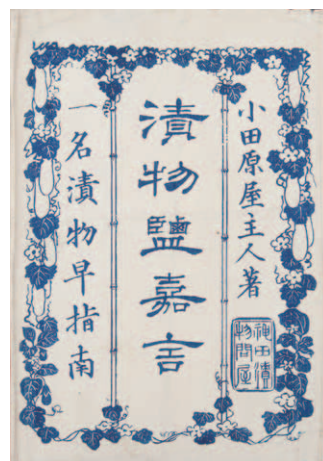 小田原屋主人著
神田漬
物問屋
漬物鹽嘉言
一名漬物早指南